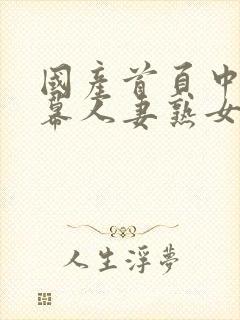 國產首頁中
幕人妻熟女
人生浮夢